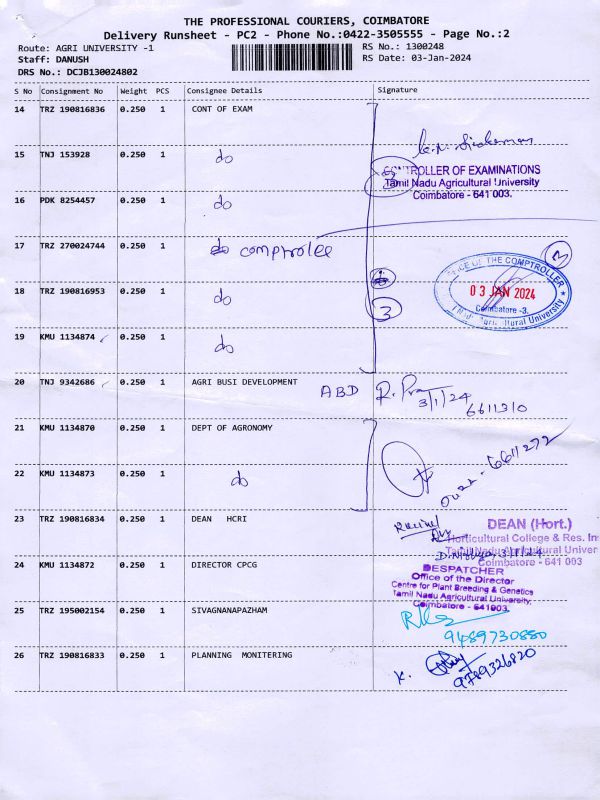 THE PROFESSIONAL COURIERS, COIMBATORE
Delivery Runsheet - PC2 - Phone No.:0422-3505555 - Page No.:2
Route: AGRI UNIVERSITY -1
RS No.: 1300248
Staff: DANUSH
RS Date: 03-Jan-2024
DRS No.: DCJB130024802
S No Consignment No Weight PCS Consignee Details Signature
14 TRZ 190816836 0.250 1 CONT OF EXAM
15 TNJ 153928 0.250 1 do
CONTROLLER OF EXAMINATIONS
Tamil Nadu Agricultural University
Coimbatore - 641 003.
16 PDK 8254457 0.250 1 do
17 TRZ 270024744 0.250 1 do comptrolee
OFFICE OF THE COMPTROLLER
03 JAN 2024
Coimbatore -3.
Tamil Nadu Agricultural University
18 TRZ 190816953 0.250 1 do
3
19 KMU 1134874 0.250 1 do
20 TNJ 9342686 0.250 1 AGRI BUSI DEVELOPMENT ABD
3/1/24
6611310
21 KMU 1134870 0.250 1 DEPT OF AGRONOMY
6611272
22 KMU 1134873 0.250 1 do
23 TRZ 190816834 0.250 1 DEAN HCRI
DEAN (Hort.)
Horticultural College & Res. In
Tamil Nadu Agricultural Univer
Coimbatore - 641 003
24 KMU 1134872 0.250 1 DIRECTOR CPCG
DESPATCHER
Office of the Director
Centre for Plant Breeding & Genetics
Tamil Nadu Agricultural University,
Coimbatore - 641003.
25 TRZ 195002154 0.250 1 SIVAGNANAPAZHAM
9489730880
26 TRZ 190816833 0.250 1 PLANNING MONITERING
K.
9789326820